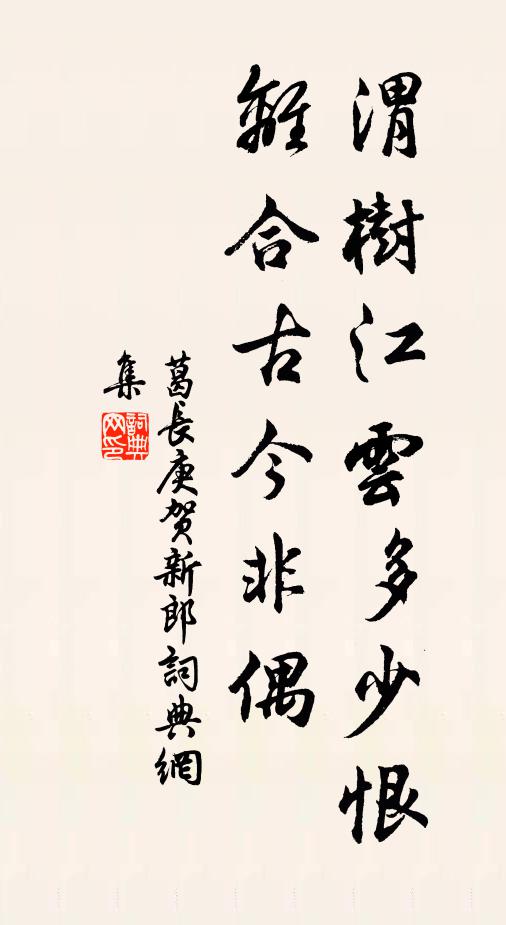 渭樹江雲多少恨
離合古今非偶
葛長庚賀新郎詞典網
集
詞典网印